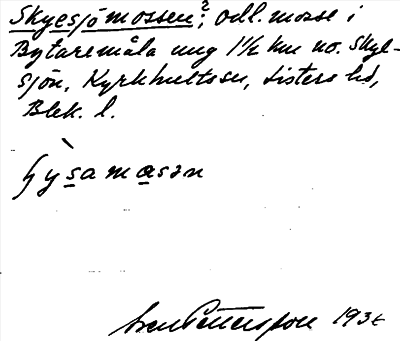 Skyesjömossen?, odl. mosse i
Bytaremåla ung 1 1/2 km no. Skye-
sjön, Kyrkhults sn, Listers hd,
Blek. l.
ysamasən
Sven Pettersson 193